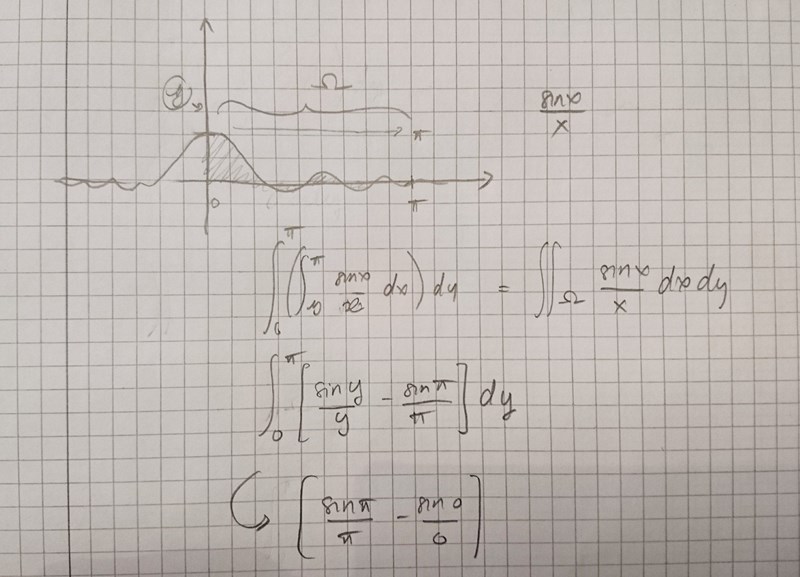 Ω
sin x / x
π
0 π
∫_0^π ( ∫_y^π sin x / x dx ) dy = ∬_Ω sin x / x dx dy
∫_0^π [ sin y / y - sin π / π ] dy
↳ [ sin π / π - sin 0 / 0 ]